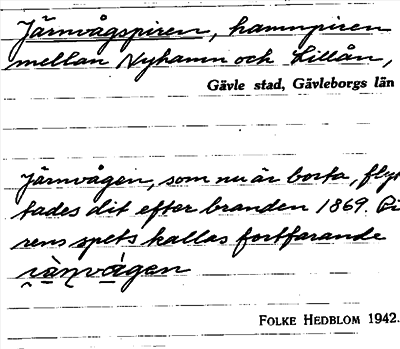 Järnvågspiren, hamnpiren
mellan Nyhamn och Lillån,
Gävle stad, Gävleborgs län
Järnvågen, som nu är borta, flyt
tades dit efter branden 1869. Pi
rens spets kallas fortfarande
FOLKE HEDBLOM 1942.